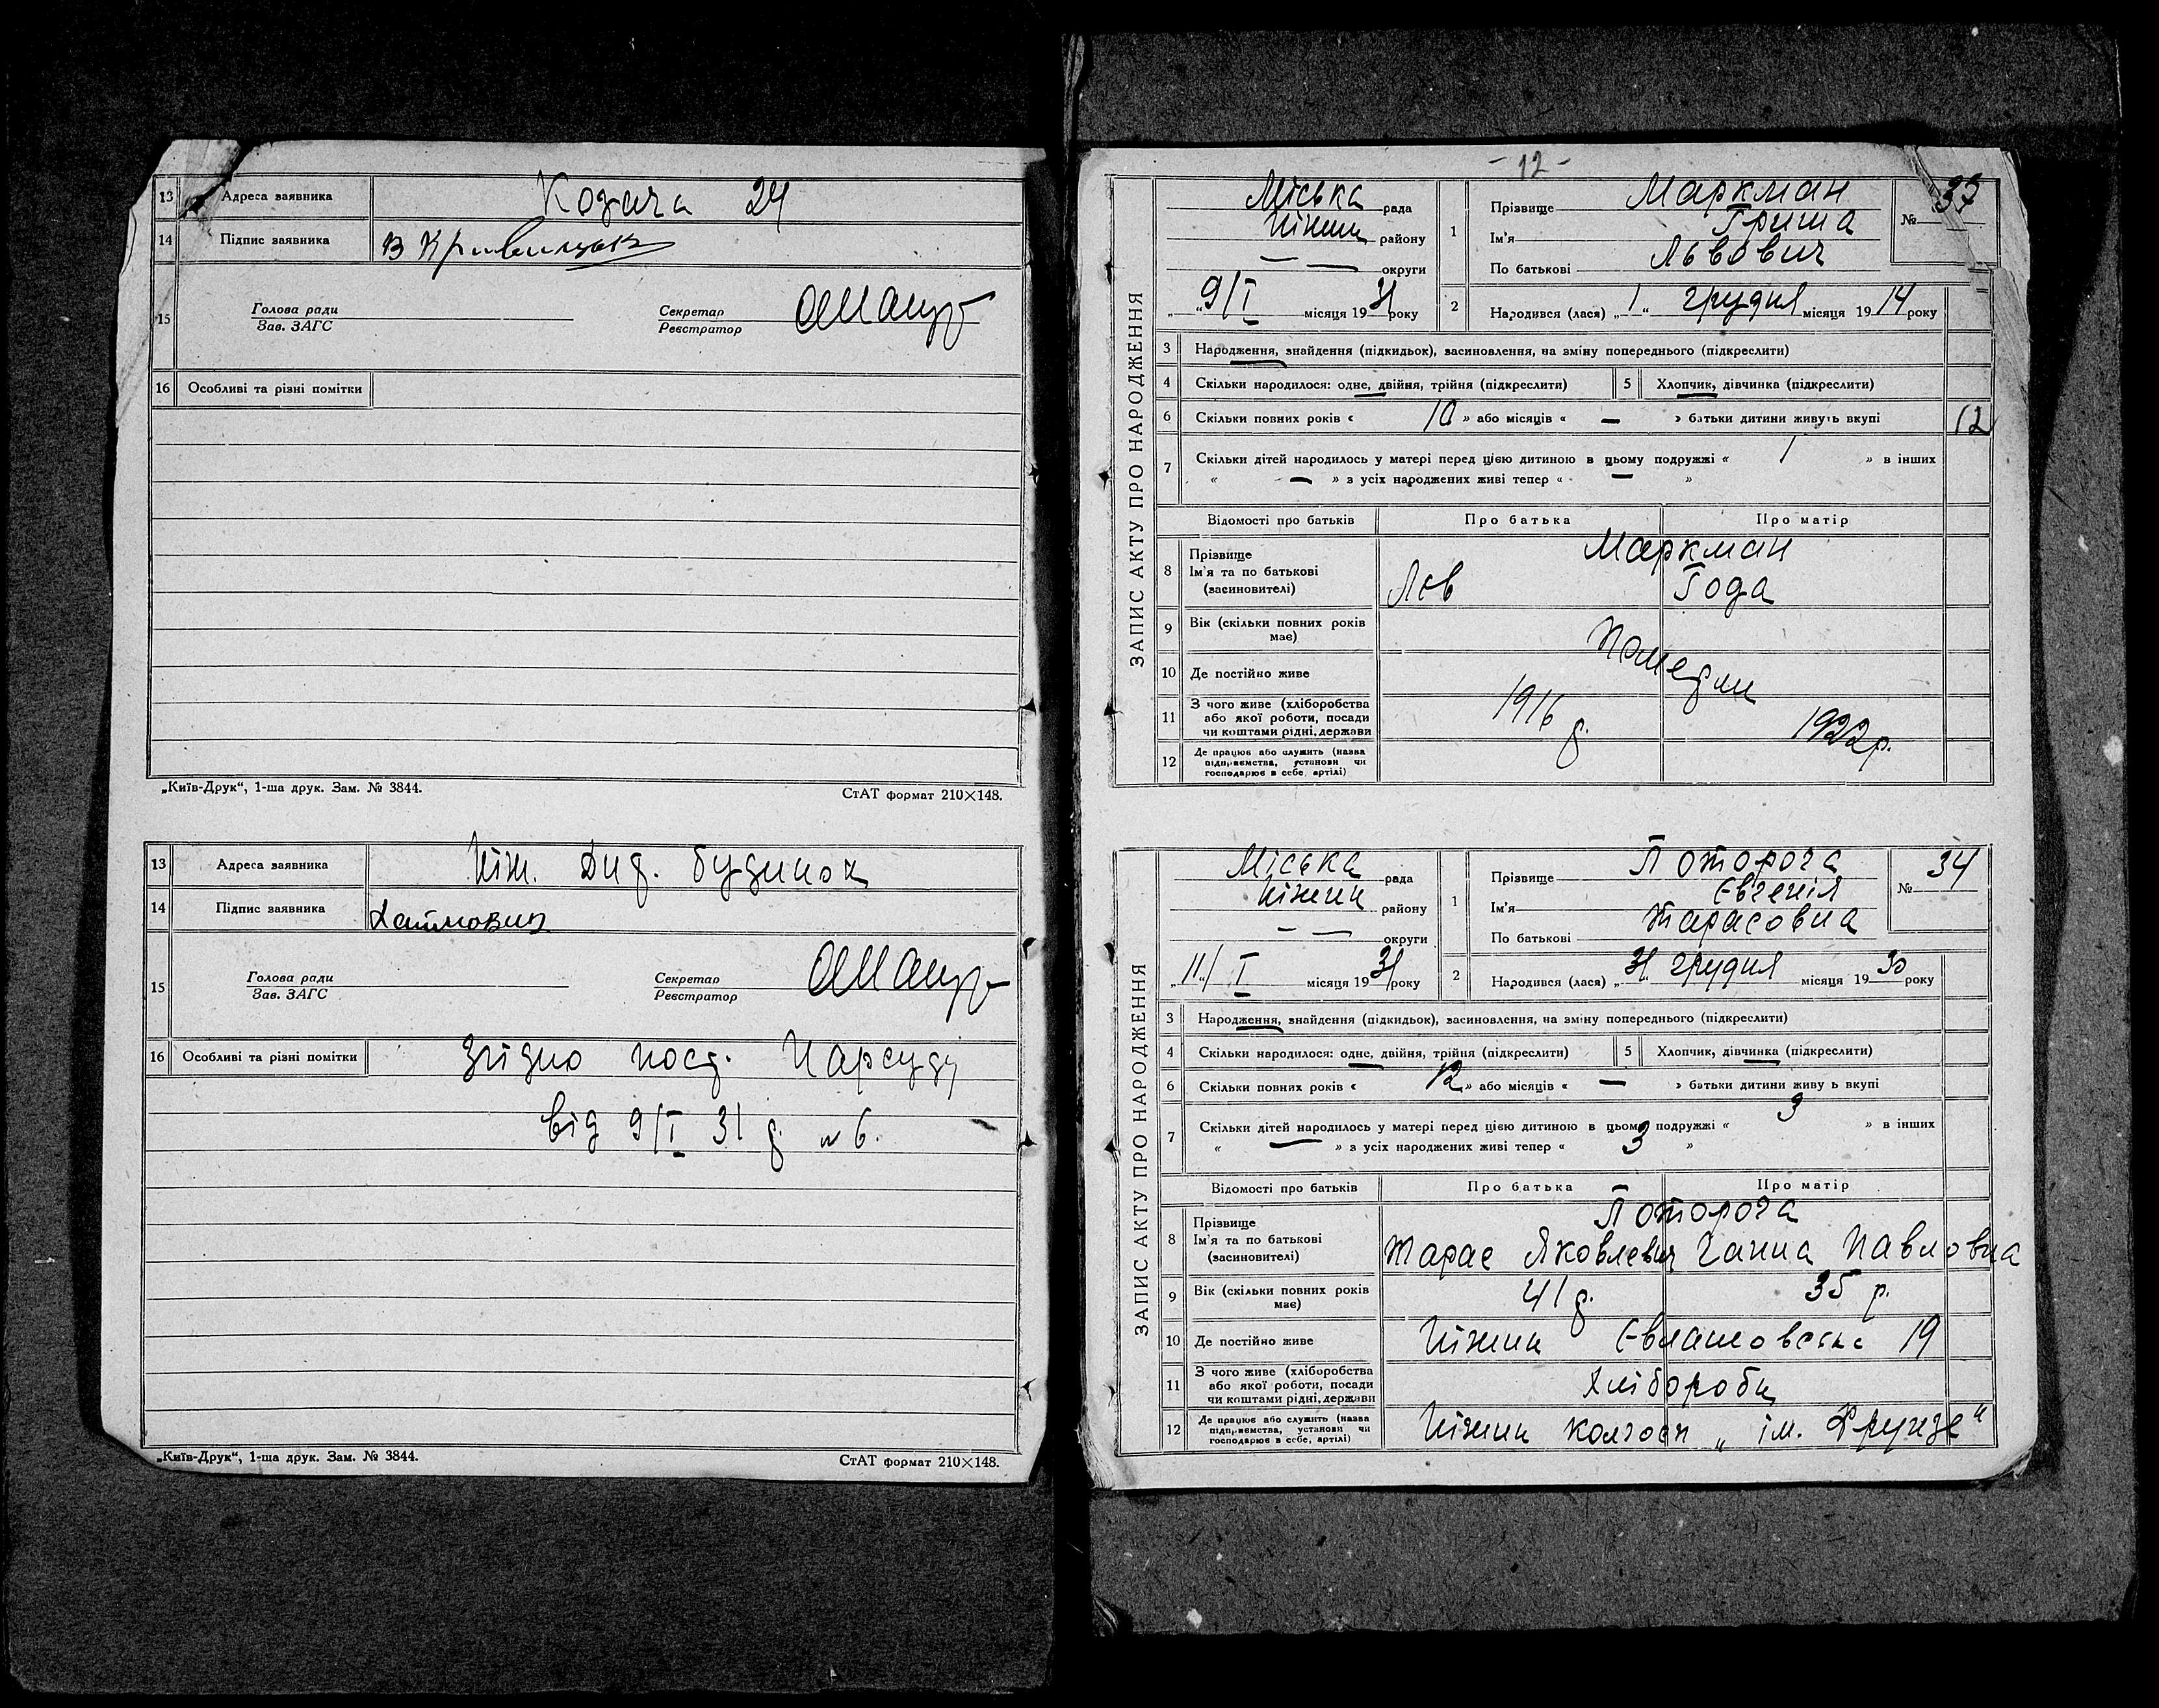 13 Адреса заявника Козача 24
14 Підпис заявника В Кривицьк
15 Голова ради
Зав. ЗАГС
Секретар
Реєстратор
16 Особливі та різні помітки
„Київ-Друк“, 1-ша друк. Зам. № 3844. СтАТ формат 210×148.
13 Адреса заявника Ніж. Дит. будинок
14 Підпис заявника Хаймович
15 Голова ради
Зав. ЗАГС
Секретар
Реєстратор
16 Особливі та різні помітки Згідно пост. Нарсуду
від 9/I 31 р. № 6.
„Київ-Друк“, 1-ша друк. Зам. № 3844. СтАТ формат 210×148.
- 12 -
ЗАПИС АКТУ ПРО НАРОДЖЕННЯ
Міська рада
Ніжин району
— — округи
„9/I місяця 1931 року
1 Прізвище Маркман
Ім'я Гриша
По батькові Львович
№ 33
2 Народився (лася) „1“ грудня місяця 1914 року
3 Народження, знайдення (підкидьок), засиновлення, на зміну попереднього (підкреслити)
4 Скільки народилося: одне, двійня, трійня (підкреслити) 5 Хлопчик, дівчинка (підкреслити)
6 Скільки повних років « 10 » або місяців « — » батьки дитини живуть вкупі 12
7 Скільки дітей народилось у матері перед цією дитиною в цьому подружжі « 1 » в інших
« — » з усіх народжених живі тепер « — »
Відомості про батьків Про батька Про матір
8 Прізвище Маркман
Ім'я та по батькові Лев Года
(засиновителі)
9 Вік (скільки повних років має) Померли
10 Де постійно живе
11 З чого живе (хліборобства або якої роботи, посади чи коштами рідні, держави 1916 р. 1922 р.
12 Де працює або служить (назва підприємства, установи чи господарює в себе, артілі)
ЗАПИС АКТУ ПРО НАРОДЖЕННЯ
Міська рада
Ніжин району
— — округи
„11“/I місяця 1931 року
1 Прізвище Потороча
Ім'я Євгенія
По батькові Тарасовна
№ 34
2 Народився (лася) „31“ грудня місяця 1930 року
3 Народження, знайдення (підкидьок), засиновлення, на зміну попереднього (підкреслити)
4 Скільки народилося: одне, двійня, трійня (підкреслити) 5 Хлопчик, дівчинка (підкреслити)
6 Скільки повних років « 12 » або місяців « — » батьки дитини живу ь вкупі
7 Скільки дітей народилось у матері перед цією дитиною в цьому подружжі « 3 » в інших
« — » з усіх народжених живі тепер « 3 »
Відомості про батьків Про батька Про матір
8 Прізвище Потороча
Ім'я та по батькові Тарас Яковлевич Ганна Павловна
(засиновителі)
9 Вік (скільки повних років має) 41 р. 35 р.
10 Де постійно живе Ніжин Євлашовська 19
11 З чого живе (хліборобства або якої роботи, посади чи коштами рідні, держави Хлібороби
12 Де працює або служить (назва підприємства, установи чи господарює в себе, артілі) Ніжин колгосп „ім. Фрунзе“